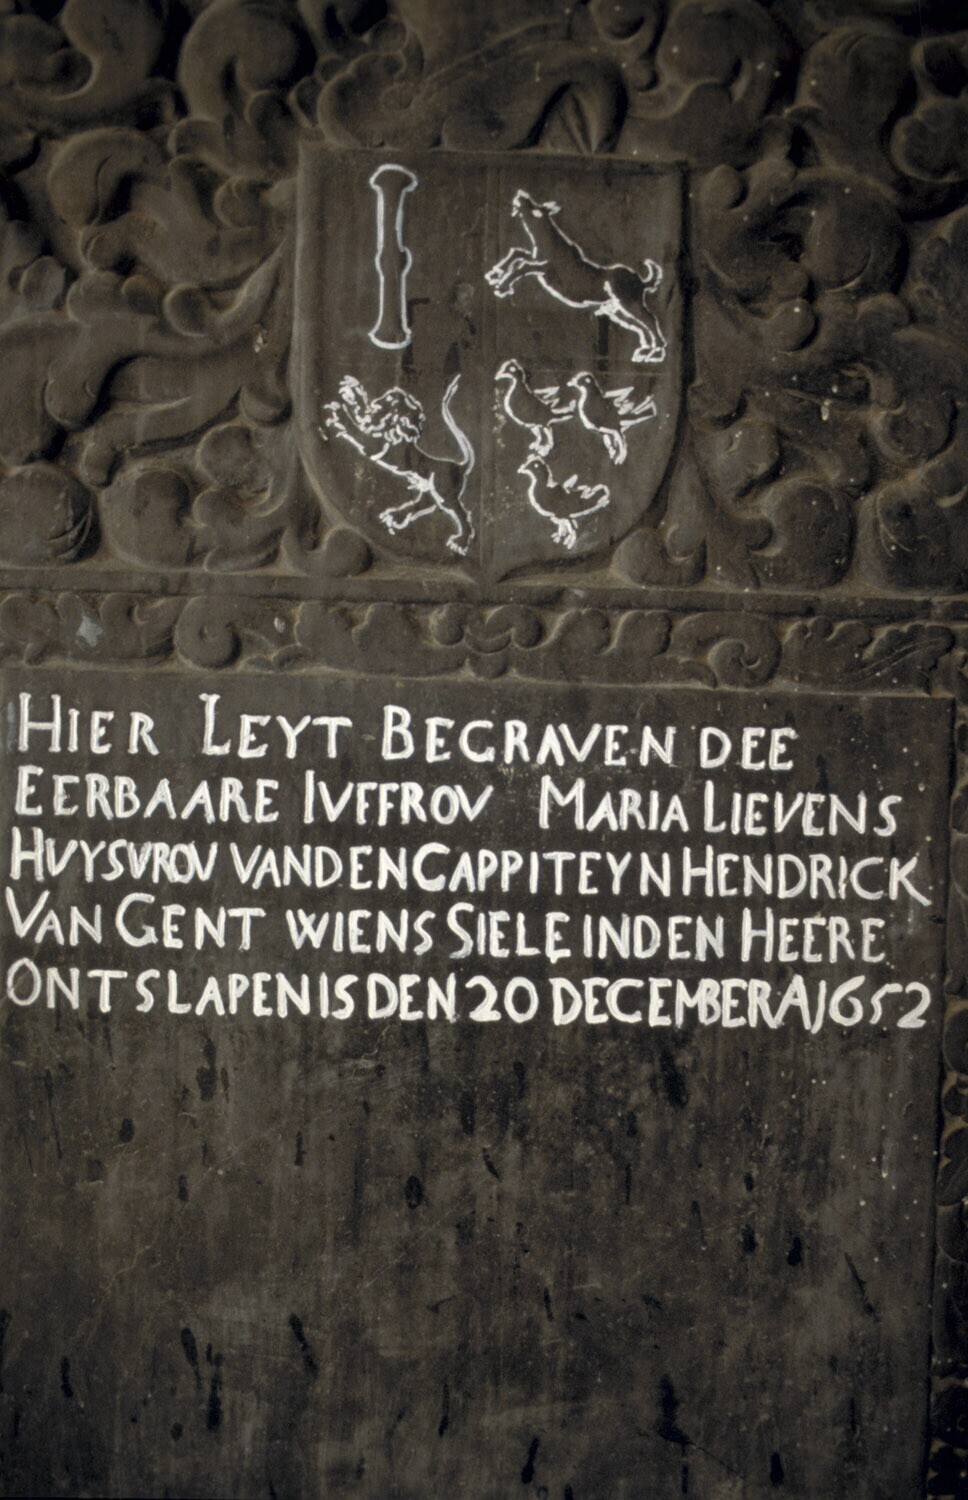 HIER LEYT BEGRAVEN DEE
EERBAARE IVFFROV MARIA LIEVENS
HVYSVROV VANDEN CAPPITEYN HENDRICK
VAN GENT WIENS SIELE INDEN HEERE
ONTSLAPEN IS DEN 20 DECEMBER A 1652